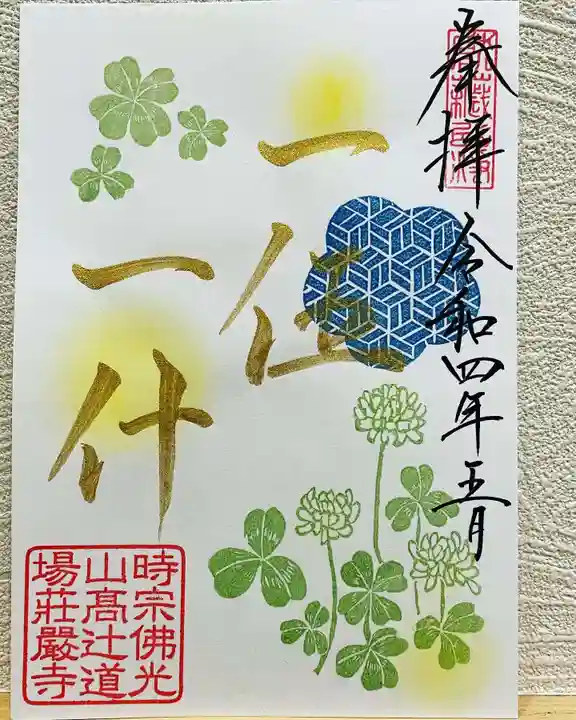 奉拝 令和四年五月
一住
一什
時宗佛光
山髙辻道
場莊嚴寺